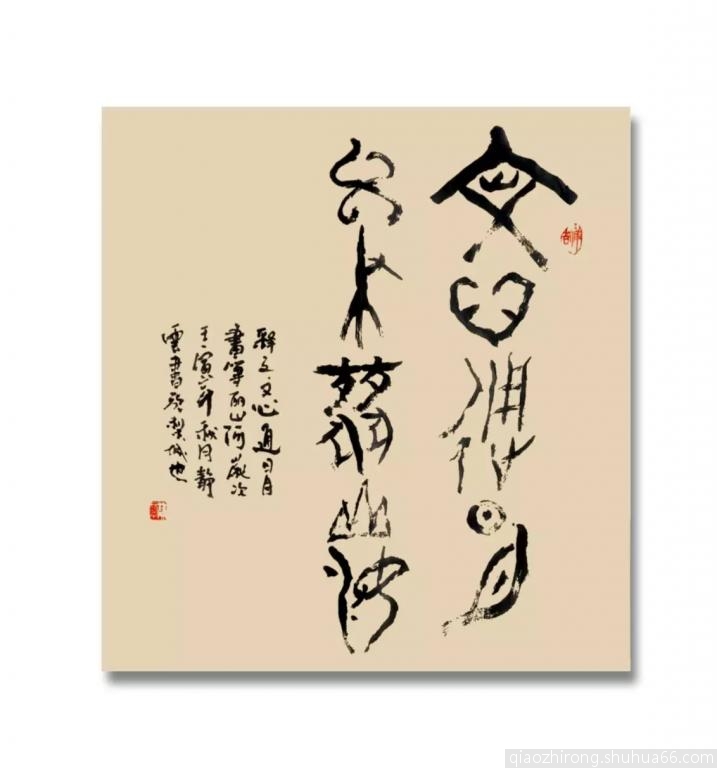 文心通日月
麗山河
釋文文心通日月
筆麗山河歲次
壬寅年秋月靜
雲書於梨城也
qiaozhirong.shuhua66.com